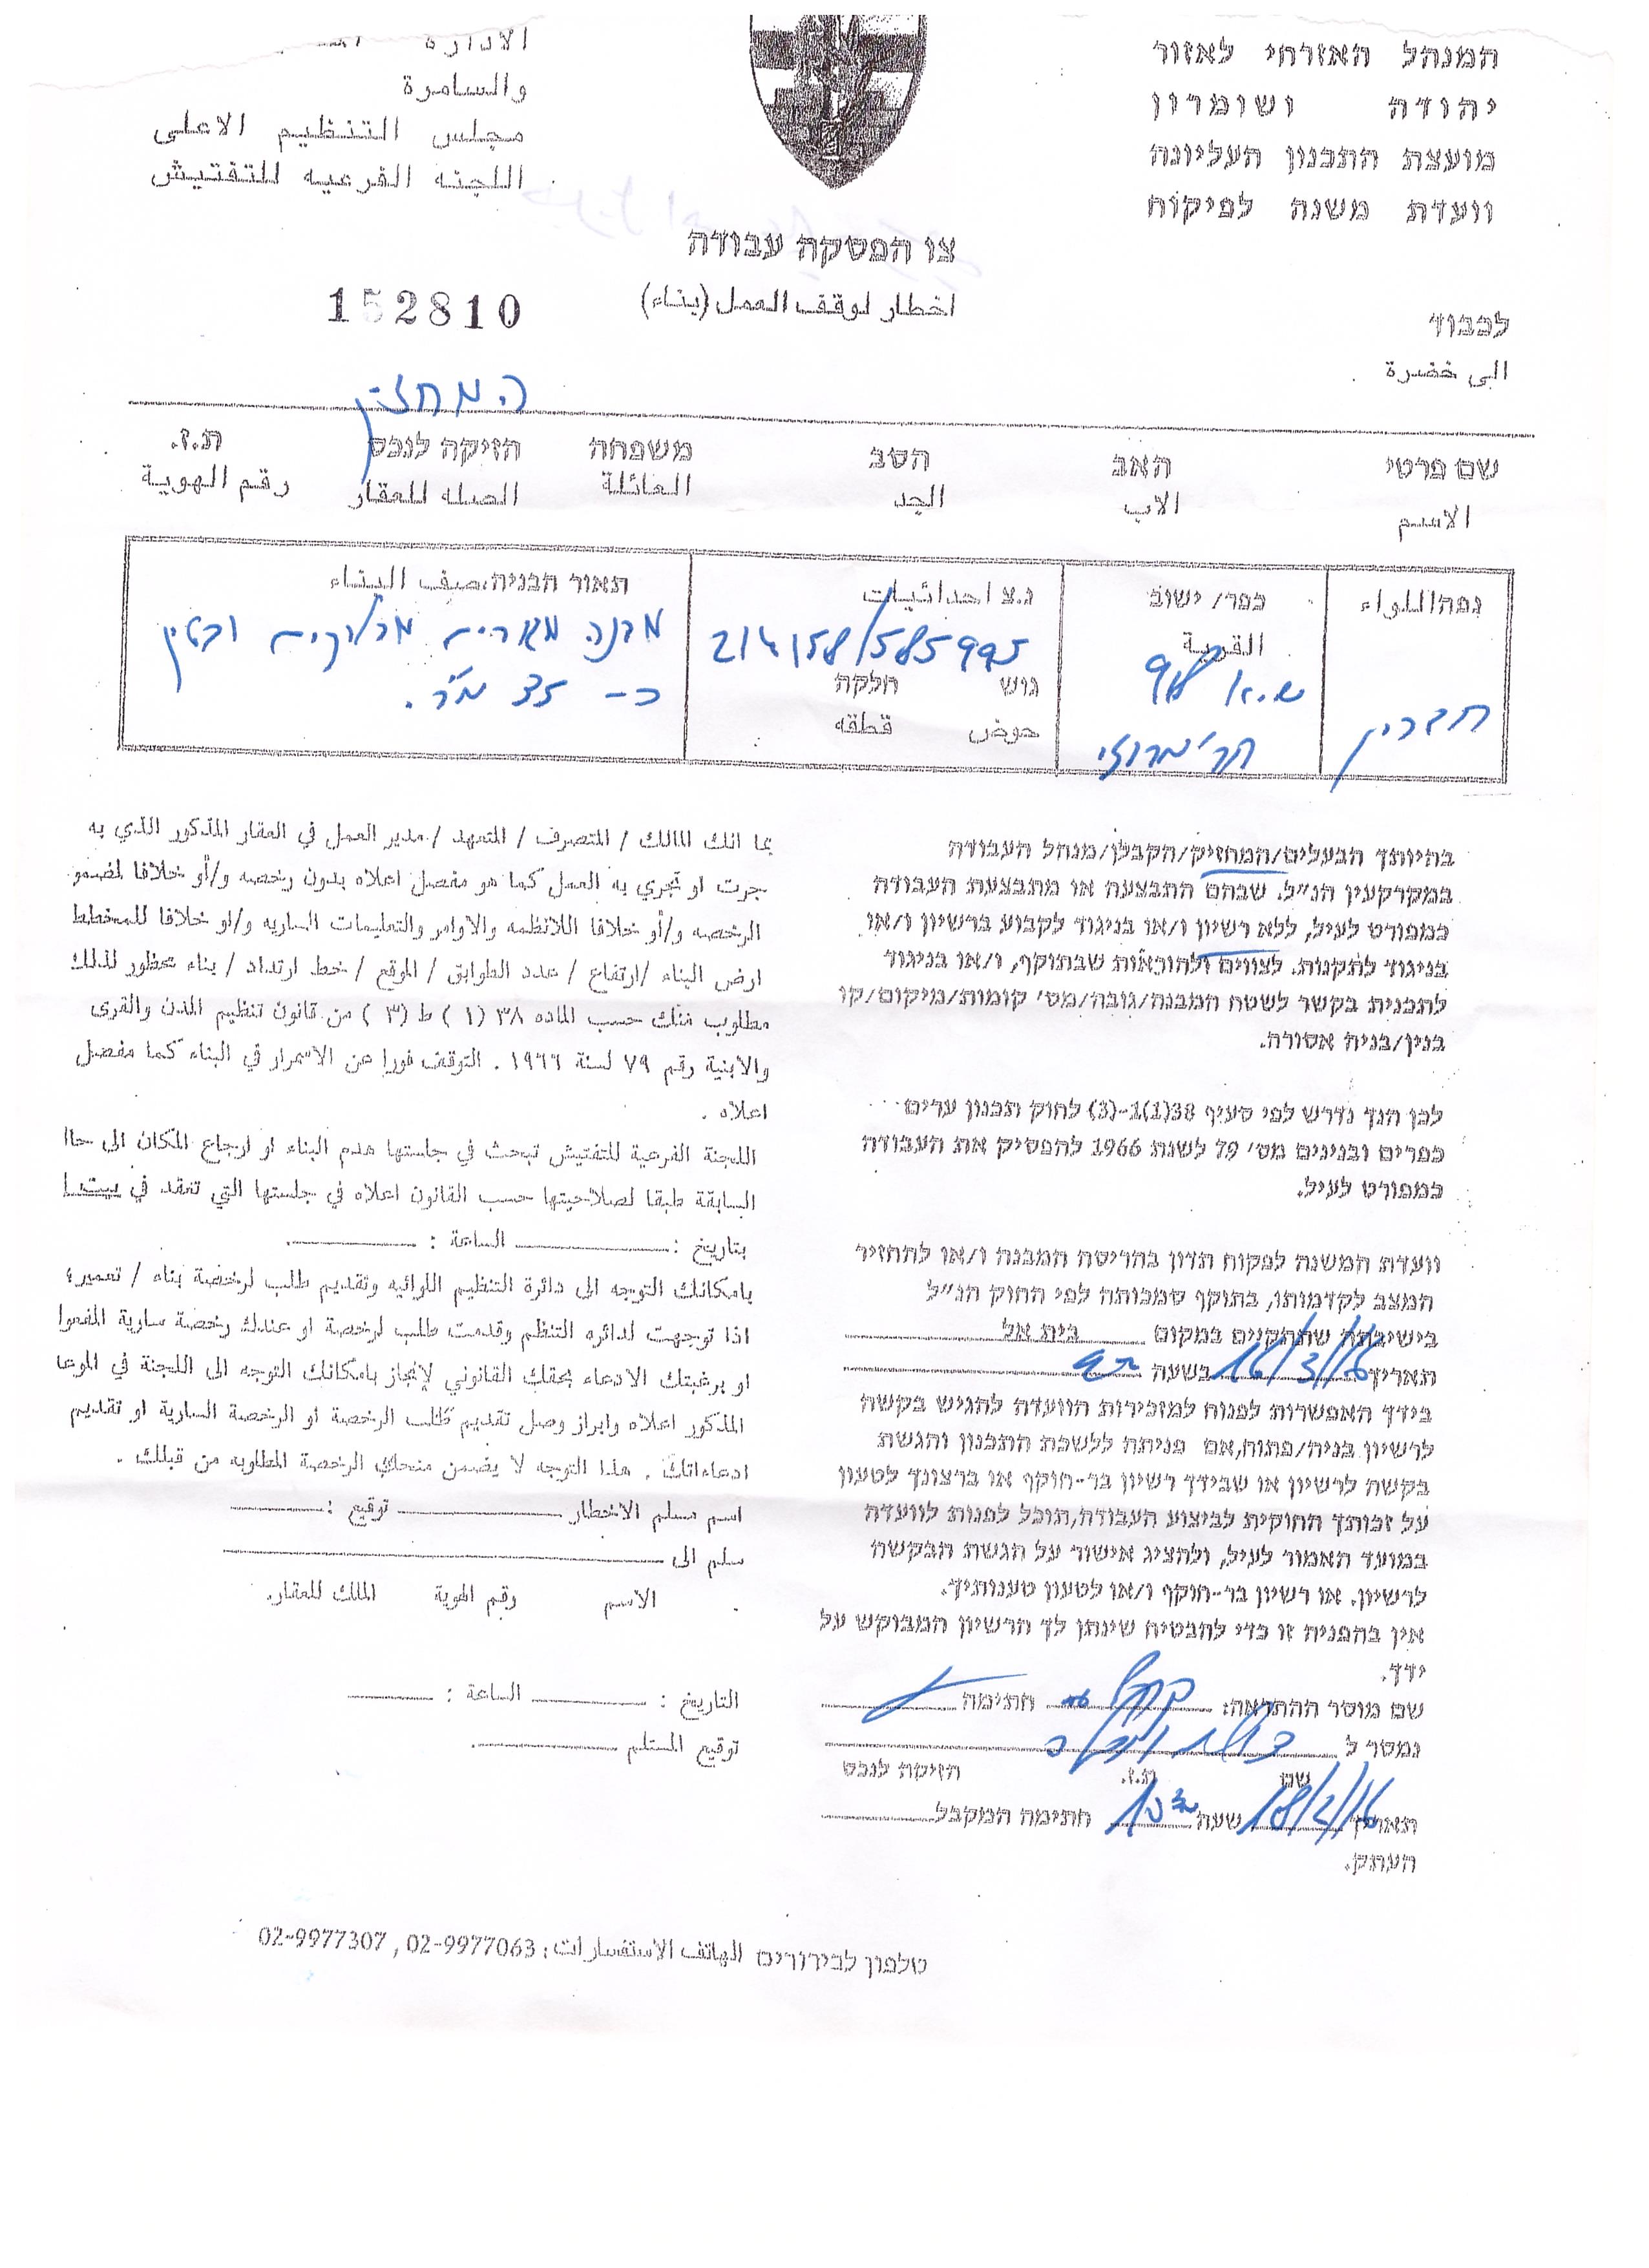 המנהל האזרחי לאזור
יהודה ושומרון
מועצת התכנון העליונה
וועדת משנה לפיקוח
الادارة
والسامرة
مجلس التنظيم الاعلى
اللجنه الفرعيه للتفتيش
צו הפסקה עבודה
اخطار لوقف العمل (بناء)
152810
לכבוד
الى حضرة
המחזיק
שם פרטי האב הסב משפחה הזיקה לנכס ת.ז.
الاسم الاب الجد العائلة الصله للعقار رقم الهوية
נפה/اللواء
חברון
כפר/ ישוב
القرية
נ.צ احداثيات
214158/585995
גוש חלקה
حوض قطقه
תאור הבניה،صيف البناء
מבנה מגורים מבלוקים ובטון
כ- 35 מ"ר.
בהיותך הבעלים/המחזיק/הקבלן/מנהל העבודה
במקרקעין הנ״ל. שבהם התבצעה או מתבצעת העבודה
כמפורט לעיל, ללא רשיון ו/או בניגוד לקבוע ברשיון ו/או
בניגוד לתקנות. לצווים ולהוראות שבתוקף, ו/או בניגוד
לתכנית בקשר לשטח המבנה/גובה/מס׳ קומות/מיקום/קו
בנין/בניה אסורה.
לכן הנך נדרש לפי סעיף 38(1)1-(3) לחוק תכנון ערים
כפרים ובנינים מס׳ 79 לשנת 1966 להפסיק את העבודה
כמפורט לעיל.
וועדת המשנה לפקוח תדון בהריסה המבנה ו/או להחזיר
המצב לקדמותו, בתוקף סמכותה לפי החוק הנ״ל
בישיבתה שתתקיים במקום בית אל
תאריך 16/3/16 בשעה
בידך האפשרות לפנות למזכירות הוועדה להגיש בקשה
לרשיון בניה/פתוח,אם פניתה ללשכת התכנון והגשת
בקשה לרשיון או שבידך רשיון בר-תוקף או ברצונך לטעון
על זכותך החוקית לביצוע העבודה,תוכל לפנות לוועדה
במועד האמור לעיל, ולהציג אישור על הגשת הבקשה
לרשיון. או רשיון בר-תוקף ו/או לטעון טענותיך.
אין בהפניה זו כדי להבטיח שינתן לך הרשיון המבוקש על
ידך.
שם מוסר ההתראה: חתימה
נמסר ל
שם ת.ז. הזיקה לנכס
תאריך 18/2/16 שעה 10 חתימה המקבל
העתק.
بما انك المالك / المتصرف / المتعهد / مدير العمل في العقار المذكور الذي به
جرت او تجري به العمل كما هو مفصل اعلاه بدون رخصه و/أو خلافا لمضمو
الرخصه و/أو خلافا اللانظمه والاوامر والتعليمات الساريه و/او خلافا للمخطط
ارض البناء /ارتفاع / عدد الطوابق / الموقع / خط ارتداد / بناء محظور لذلك
مطلوب منك حسب الماده ٣٨ (١) ط (٣) من قانون تنظيم المدن والقرى
والابنية رقم ٧٩ لسنة ١٩٦٦ . التوقف فورا عن الاستمرار في البناء كما مفصل
اعلاه .
اللجنة الفرعية للتفتيش تبحث في جلستها هدم البناء او ارجاع المكان الى حاا
السابقة طبقا لصلاحيتها حسب القانون اعلاه في جلستها التي تعقد في بيت ا
بتاريخ : الساعة :
بامكانك التوجه الى دائرة التنظيم اللوائيه وتقديم طلب لرخصة بناء / تعمير؛
اذا توجهت لدائره التنظم وقدمت طلب لرخصة او عندك رخصة سارية المفعوا
او برغبتك الادعاء بحقك القانوني لإنجاز بامكانك التوجه الى اللجنة في الموعا
المذكور اعلاه وابراز وصل تقديم طلب الرخصة او الرخصة السارية او تقديم
ادعاءاتك . هذا التوجه لا يضمن منحك الرخصة المطلوبه من قبلك .
اسم مسلم الاخطار توقيع :
سلم الى
الاسم رقم الهوية المالك للعقار.
التاريخ : الساعة :
توقيع المستلم
טלפון לבירורים الهاتف الاستفسارات: 02-9977063 , 02-9977307